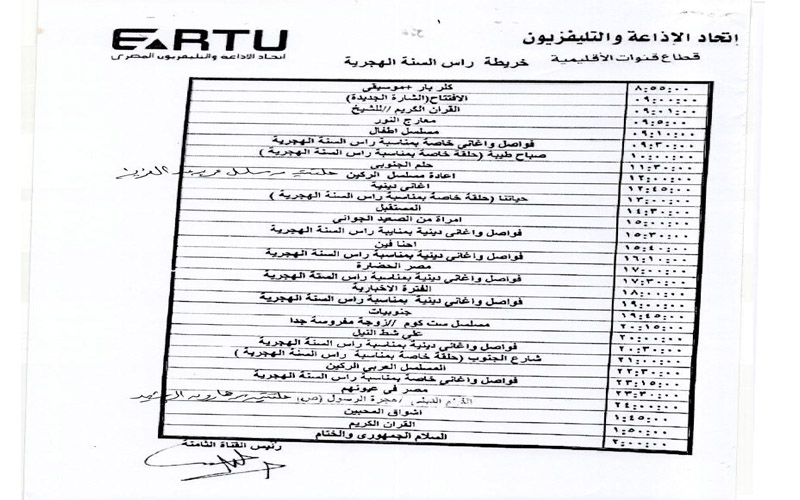 إتحاد الإذاعة والتليفزيون
ERTU
قطاع قنوات الأقليمية
خريطة راس السنة الهجرية
اتحاد الاذاعة والتليفزيون المصرى
٨:٥٥:٠٠ كلر بار +موسيقى
٠٩:٠٠:٠٠ الافتتاح(الشارة الجديدة)
٠٩:٠١:٠٠ القران الكريم //للشيخ
٠٩:٥:٠٠ معارج النور
٠٩:١٠:٠٠ مسلسل اطفال
٠٩:٣٠:٠٠ فواصل واغانى خاصة بمناسبة راس السنة الهجرية
١٠:٠٠:٠٠ صباح طيبة (حلقة خاصة بمناسبة راس السنة الهجرية )
١١:٣٠:٠٠ حلم الجنوبى
١٢:٠٠:٠٠ اعادة مسلسل الركين
١٢:٤٥:٠٠ اغانى دينية
١٣:٠٠:٠٠ حياتنا (حلقة خاصة بمناسبة راس السنة الهجرية )
١٤:٣٠:٠٠ المستقبل
١٥:٠٠:٠٠ امراة من الصعيد الجوانى
١٥:٣٠:٠٠ فواصل واغانى دينية بمناسبة راس السنة الهجرية
١٥:٤٠:٠٠ احنا فين
١٦:١٠:٠٠ فواصل واغانى دينية بمناسبة راس السنة الهجرية
١٧:٠٠:٠٠ مصر الحضارة
١٧:٣٠:٠٠ فواصل واغانى دينية بمناسبة راس السنة الهجرية
١٨:٠٠:٠٠ الفترة الاخبارية
١٩:٠٠:٠٠ فواصل واغانى دينية بمناسبة راس السنة الهجرية
١٩:٤٥:٠٠ جنوبيات
٢٠:١٥:٠٠ مسلسل ست كوم //زوجة مفروسة جدا
٢٠:٠٠:٠٠ على شط النيل
٢٠:٣٠:٠٠ فواصل واغانى دينية بمناسبة راس السنة الهجرية
٢١:٠٠:٠٠ شارع الجنوب (حلقة خاصة بمناسبة راس السنة الهجرية )
٢٢:٠٠:٠٠ المسلسل العربى الركين
٢٣:١٥:٠٠ فواصل واغانى خاصة بمناسبة راس السنة الهجرية
٢٣:٣٠:٠٠ مصر فى عيونهم
٢٤:٠٠:٠٠ الدينى /هجرة الرسول (ص)
١:٤٥:٠٠ اشواق المحبين
١:٥٠:٠٠ القران الكريم
٢:٠٠:٠٠ السلام الجمهورى والختام
رئيس القناة الثامنة